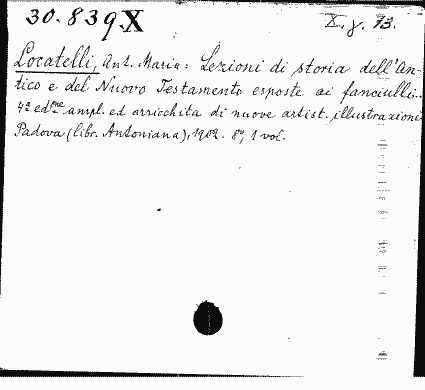 30.839.X
X. y. 13.
Locatelli, Ant. Maria: Lezioni di storia dell'An-
tico e del Nuovo Testamento esposte ai fanciulli...
4ª ed.ne ampl. ed arricchita di nuove artist. illustrazioni
Padova (libr. Antoniana), 1902. 8°, 1 vol.